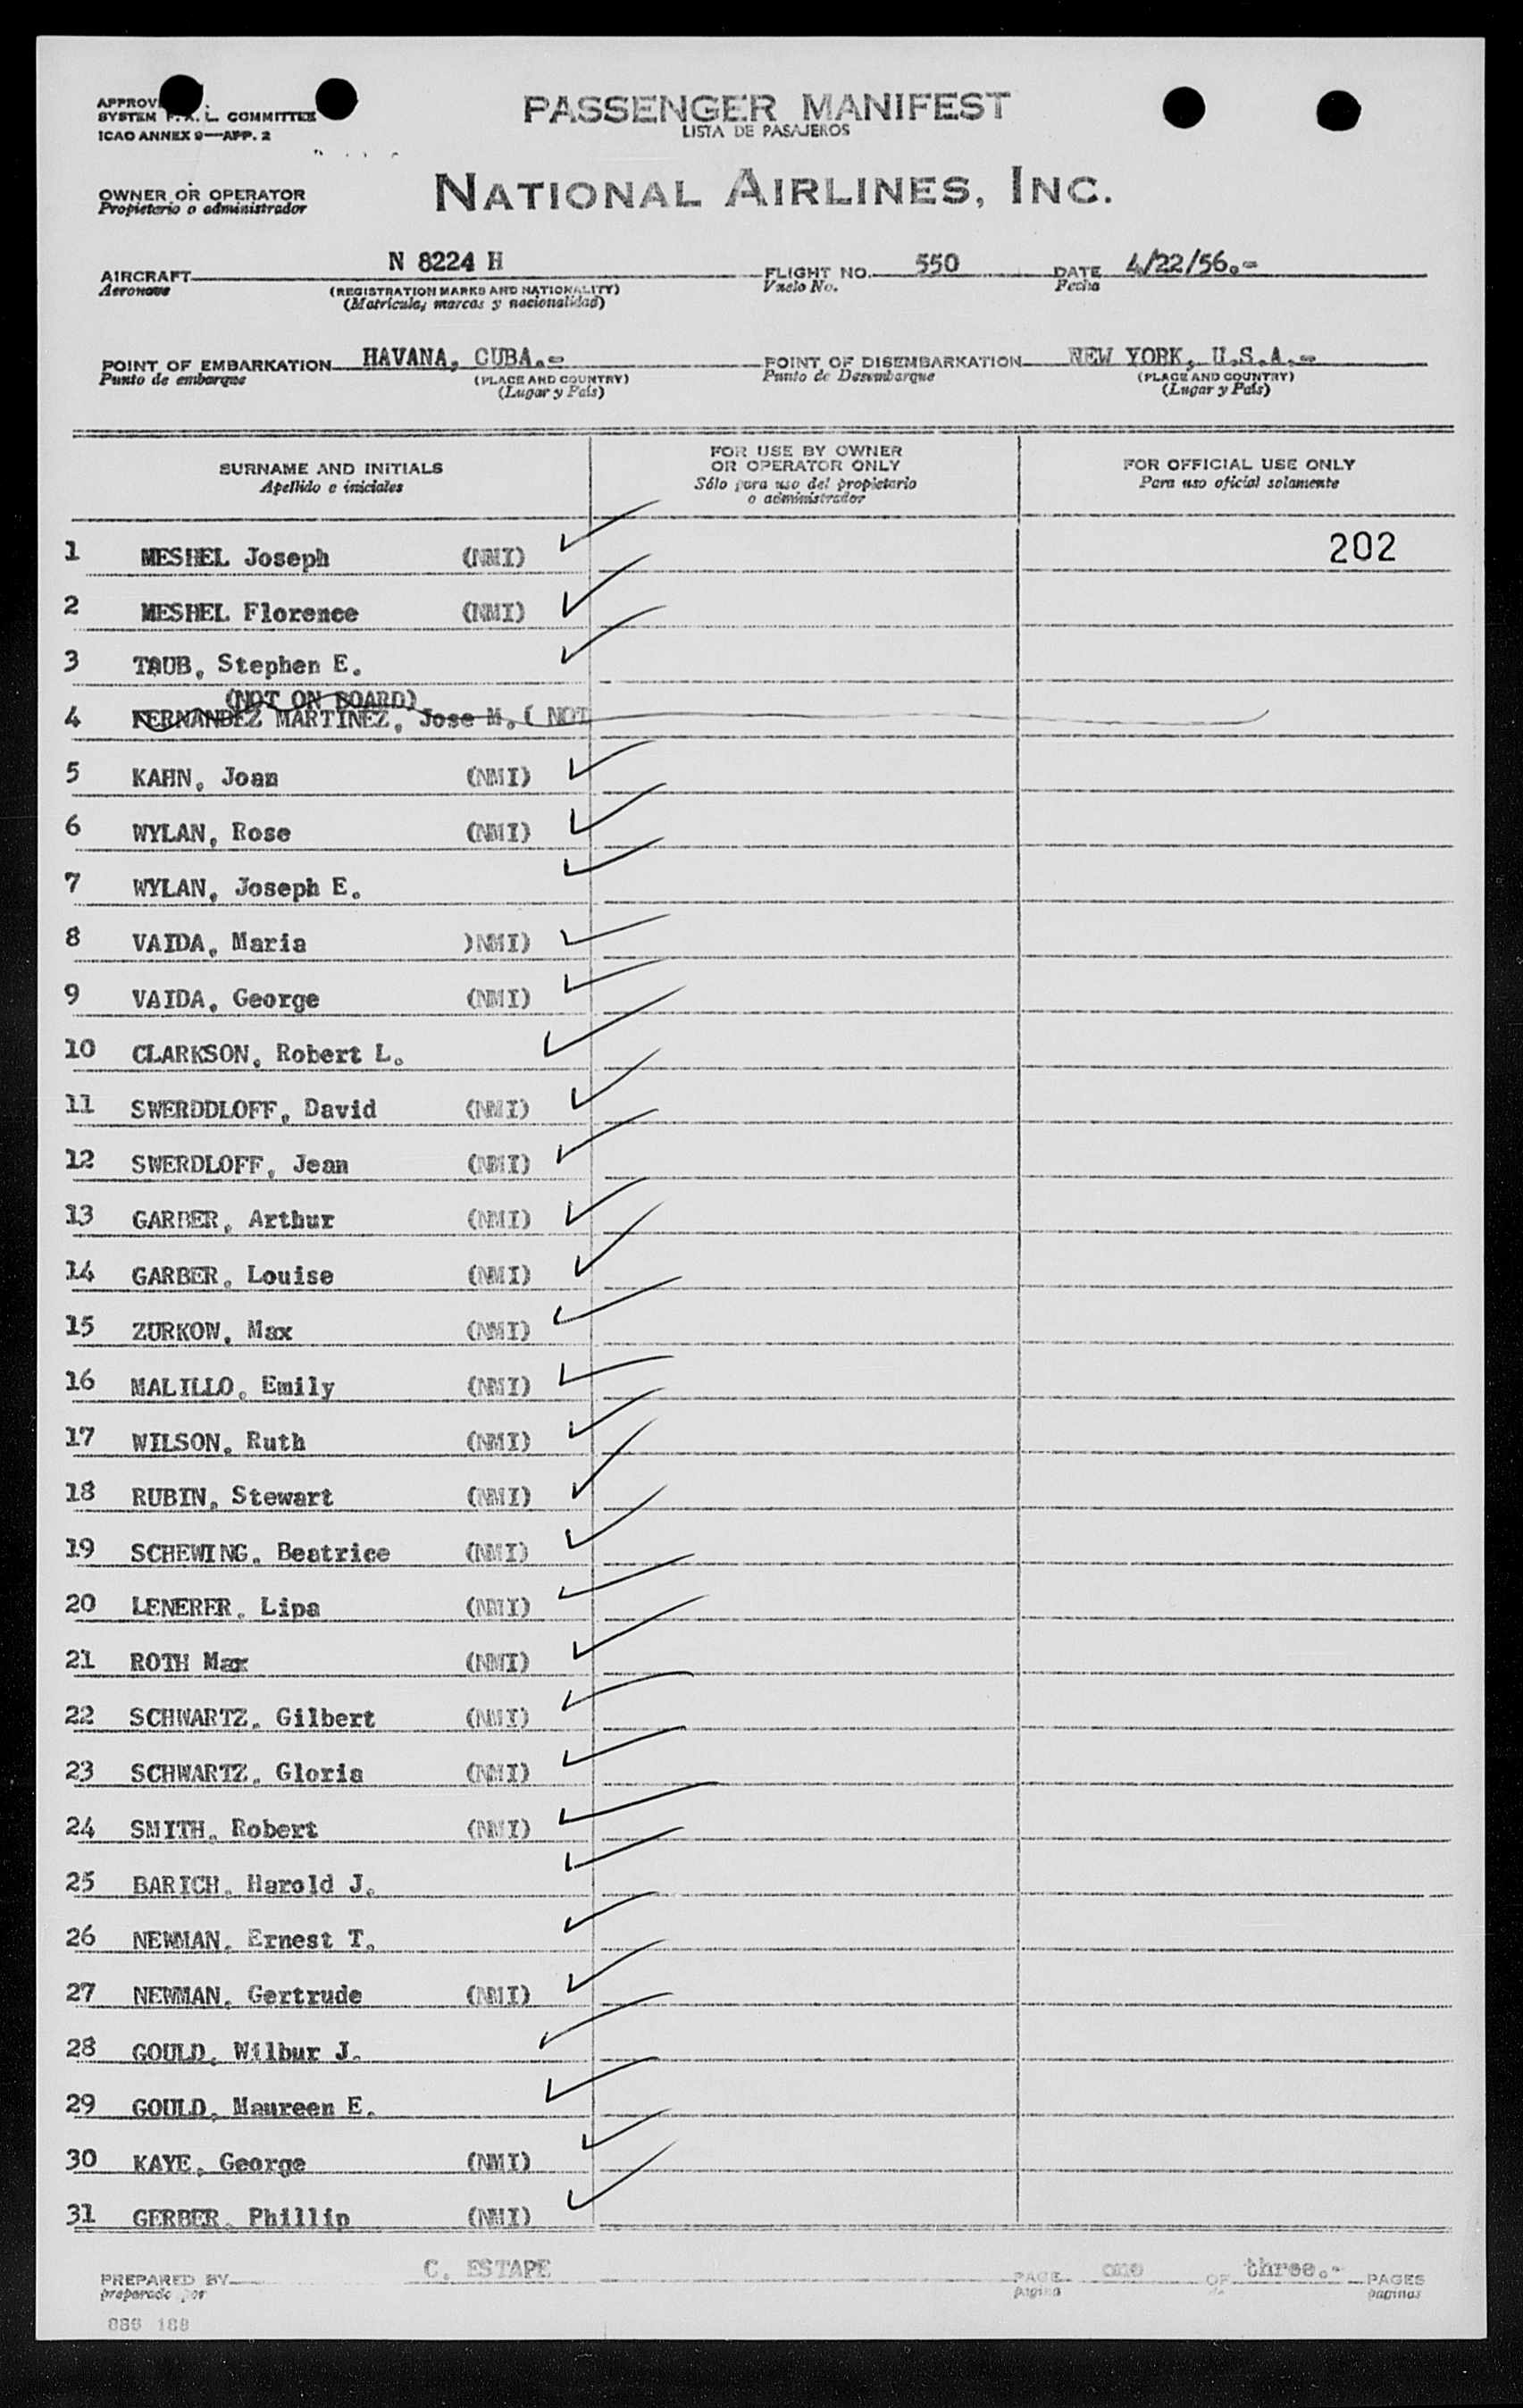 PASSENGER MANIFEST
LISTA DE PASAJEROS
SYSTEM F. A. L. COMMITTEE
ICAO ANNEX 9—APP. 2
OWNER OR OPERATOR
Propietario o administrador
NATIONAL AIRLINES, INC.
AIRCRAFT N 8224 H FLIGHT NO. 550 DATE 4/22/56.-
Aeronave (REGISTRATION MARKS AND NATIONALITY) Vuelo No. Fecha
(Matricula, marcas y nacionalidad)
POINT OF EMBARKATION HAVANA, CUBA.- POINT OF DISEMBARKATION NEW YORK, U.S.A.-
Punto de embarque (PLACE AND COUNTRY) Punto de Desembarque (PLACE AND COUNTRY)
(Lugar y País) (Lugar y País)
SURNAME AND INITIALS
Apellido e iniciales
FOR USE BY OWNER
OR OPERATOR ONLY
Sólo para uso del propietario
o administrador
FOR OFFICIAL USE ONLY
Para uso oficial solamente
202
1 MESHEL Joseph (NMI)
2 MESHEL Florence (NMI)
3 TAUB, Stephen E.
(NOT ON BOARD)
4 FERNANDEZ MARTINEZ, Jose M. ( NOT
5 KAHN, Joan (NMI)
6 WYLAN, Rose (NMI)
7 WYLAN, Joseph E.
8 VAIDA, Maria )NMI)
9 VAIDA, George (NMI)
10 CLARKSON, Robert L.
11 SWERDDLOFF, David (NMI)
12 SWERDLOFF, Jean (NMI)
13 GARBER, Arthur (NMI)
14 GARBER, Louise (NMI)
15 ZURKOW, Max (NMI)
16 MALILLO, Emily (NMI)
17 WILSON, Ruth (NMI)
18 RUBIN, Stewart (NMI)
19 SCHEWING, Beatrice (NMI)
20 LENERER, Lipa (NMI)
21 ROTH Max (NMI)
22 SCHWARTZ, Gilbert (NMI)
23 SCHWARTZ, Gloria (NMI)
24 SMITH, Robert (NMI)
25 BARICH, Harold J.
26 NEWMAN, Ernest T.
27 NEWMAN, Gertrude (NMI)
28 GOULD, Wilbur J.
29 GOULD, Maureen E.
30 KAYE, George (NMI)
31 GERBER, Phillip (NMI)
PREPARED BY C. ESTAPE PAGE one OF three.- PAGES
preparado por página de páginas